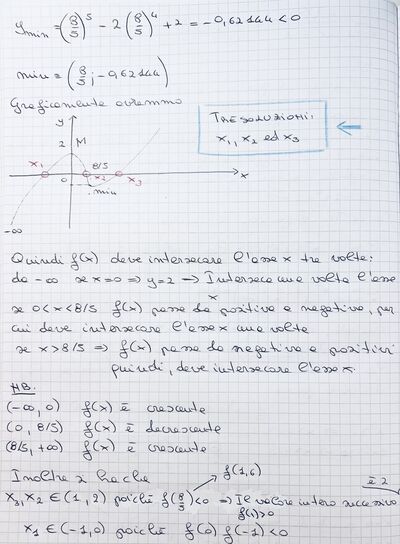 y min = (8/5)^5 - 2(8/5)^4 + 2 = -0,62144 < 0
min = (8/5; -0,62144)
Graficamente avremmo
TRE SOLUZIONI:
x1, x2 ed x3
y
2 M
x1 8/5 x
0 x2 x3
min
-∞
Quindi f(x) deve intersecare l'asse x tre volte:
da -∞ se x=0 ⇒ y=2 → Interseca una volta l'asse
x
se 0<x<8/5 f(x) passa da positiva a negativa, per
cui deve intersecare l'asse x una volta
se x>8/5 ⇒ f(x) passa da negativa a positiva
quindi, deve intersecare l'asse x.
NB.
(-∞, 0) f(x) è crescente
(0, 8/5) f(x) è decrescente
(8/5, +∞) f(x) è crescente
f(1,6)
Inoltre si ha che è 2
x3, x2 ∈ (1, 2) poiché f(8/5)<0 ⇒ Il valore intero successivo
f(1)>0
x1 ∈ (-1,0) poiché f(0) f(-1) < 0